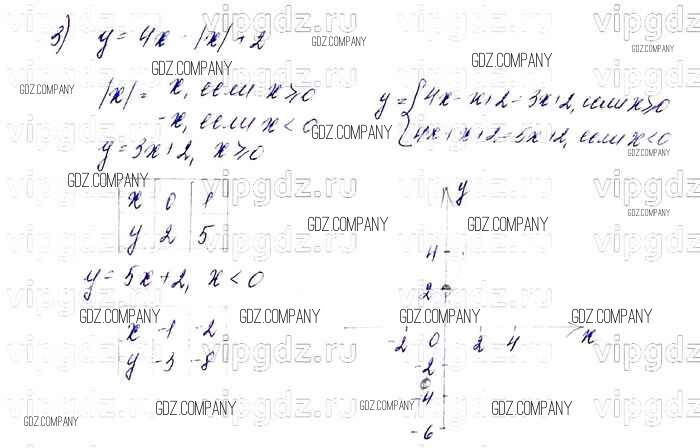 3) y = 4x - |x| + 2
|x| = x, если x ≥ 0
-x, если x < 0
y = { 4x - x + 2 = 3x + 2, если x ≥ 0
4x + x + 2 = 5x + 2, если x < 0
y = 3x + 2, x ≥ 0
x 0 1
y 2 5
y = 5x + 2, x < 0
x -1 -2
y -3 -8
y
4
2
-2 0 2 4 x
-2
-4
-6
vipgdz.ru
GDZ.COMPANY